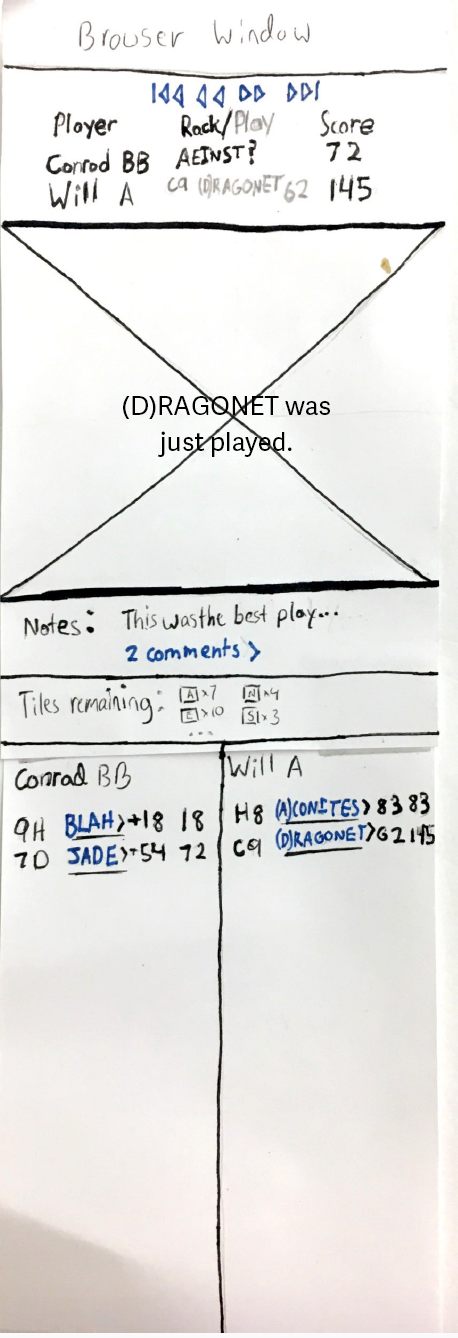 Browser Window
Player Rack/Play Score
Conrad BB AEINST? 72
Will A C9 (D)RAGONET 62 145
(D)RAGONET was
just played.
Notes: This was the best play...
2 comments >
Tiles remaining: A x7 N x4
E x10 S x3
...
Conrad BB
9H BLAH> +18 18
7D JADE> +54 72
Will A
H8 (A)CONITES> 83 83
C9 (D)RAGONET> 62 145